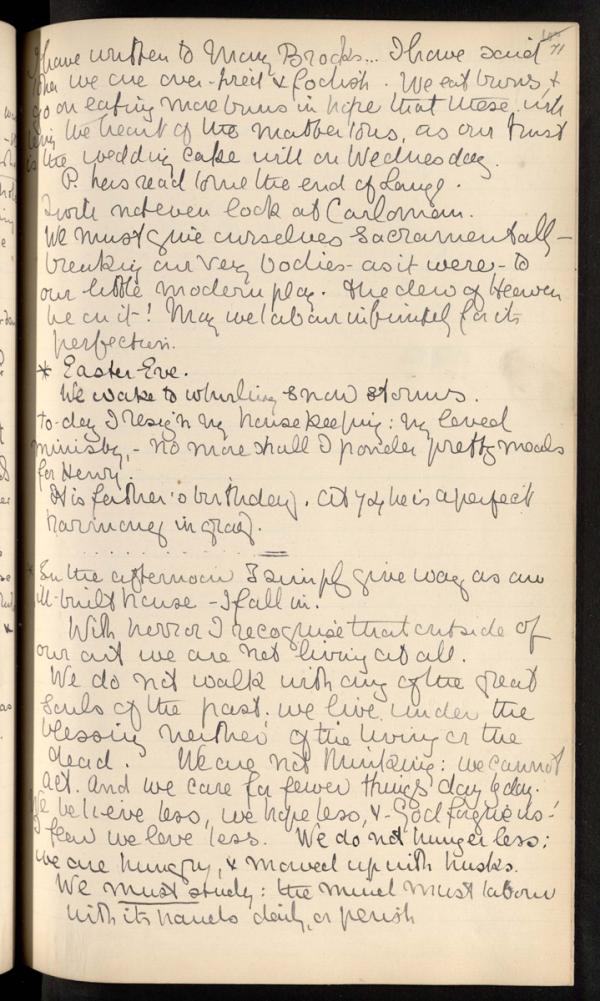 71
I have written to Mary Brooks... I have said
we are over-pried & foolish. We eat buns, &
go on eating more buns in hope that these will
the heart of the matter to us, as our trust
is the wedding cake will on Wednesday.
P. has read to me the end of
I will not even look at Carloman.
We must give ourselves sacramentally –
breaking our very bodies - as it were - to
our little modern play. The dew of Heaven
be on it! May we labour infinitely for its
perfection.
* Easter-Eve.
We wake to whirling snow storms.
to-day I resign my housekeeping: my loved
ministry, - no more shall I ponder pretty meals
for Henry.
It is father's birthday. At 74 he is a perfect
harmony in gray.
* In the afternoon I simply give way as an
ill-built house - I fall in.
With horror I recognise that outside of
our art we are not living at all.
We do not walk with any of the great
souls of the past: we live under the
blessing neither of the living or the
dead. We are not thinking: we cannot
act. And we care for fewer things day by day.
We believe less, we hope less, & - God forgive us -
I fear we love less. We do not hunger less:
we are hungry, & mowed up with husks.
We must study: the mind must labour
with its hands daily, or perish